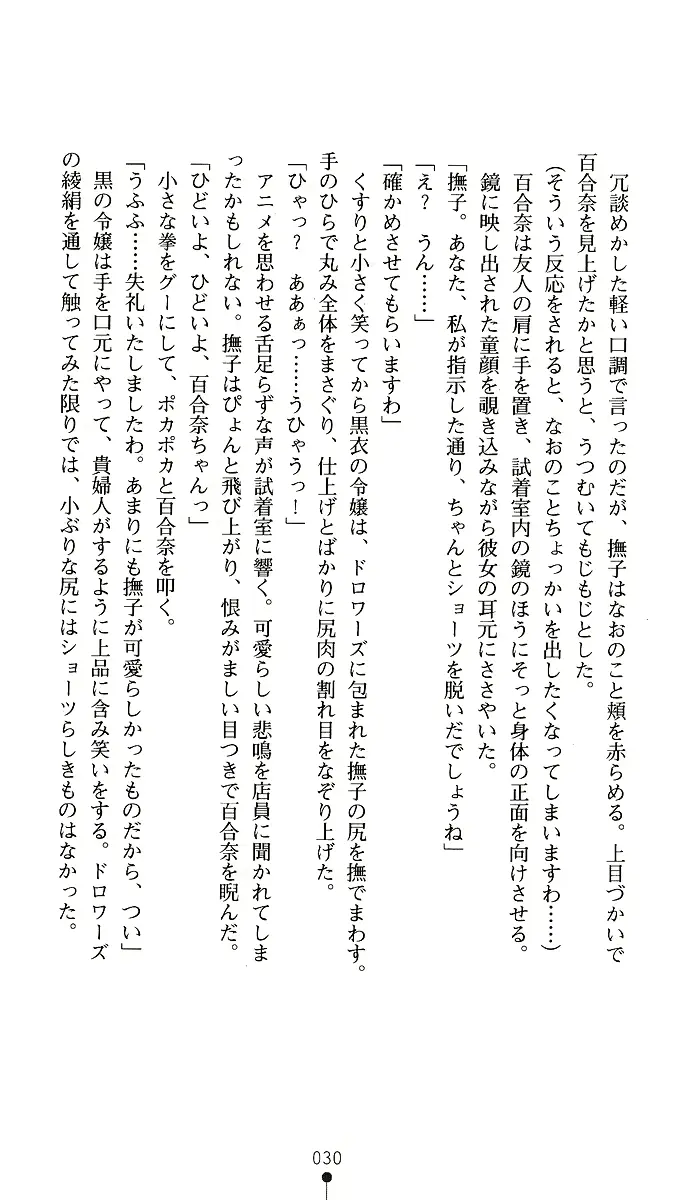 冗談めかした軽い口調で言ったのだが、撫子はなおのこと頬を赤らめる。上目づかいで
百合奈を見上げたかと思うと、うつむいてもじもじとした。
(そういう反応をされると、なおのことちょっかいを出したくなってしまいますわ……)
百合奈は友人の肩に手を置き、試着室内の鏡のほうにそっと身体の正面を向けさせる。
鏡に映し出された童顔を覗き込みながら彼女の耳元にささやいた。
「撫子。あなた、私が指示した通り、ちゃんとショーツを脱いだでしょうね」
「え？　うん……」
「確かめさせてもらいますわ」
くすりと小さく笑ってから黒衣の令嬢は、ドロワーズに包まれた撫子の尻を撫でまわす。
手のひらで丸み全体をまさぐり、仕上げとばかりに尻肉の割れ目をなぞり上げた。
「ひゃっ？　ああぁっ……うひゃうっ！」
アニメを思わせる舌足らずな声が試着室に響く。可愛らしい悲鳴を店員に聞かれてしま
ったかもしれない。撫子はぴょんと飛び上がり、恨みがましい目つきで百合奈を睨んだ。
「ひどいよ、ひどいよ、百合奈ちゃんっ」
小さな拳をグーにして、ポカポカと百合奈を叩く。
「うふふ……失礼いたしましたわ。あまりにも撫子が可愛らしかったものだから、つい」
黒の令嬢は手を口元にやって、貴婦人がするように上品に含み笑いをする。ドロワーズ
の綾絹を通して触ってみた限りでは、小ぶりな尻にはショーツらしきものはなかった。
030